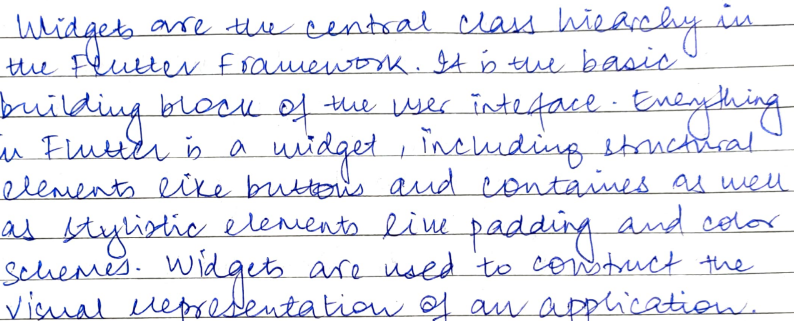 Widgets are the central class hiearchy in
the Flutter Framework. It is the basic
building block of the user inteface. Everything
in Flutter is a widget, including structural
elements like buttons and containes as well
as stylistic elements like padding and color
schemes. Widgets are used to construct the
visual representation of an application.